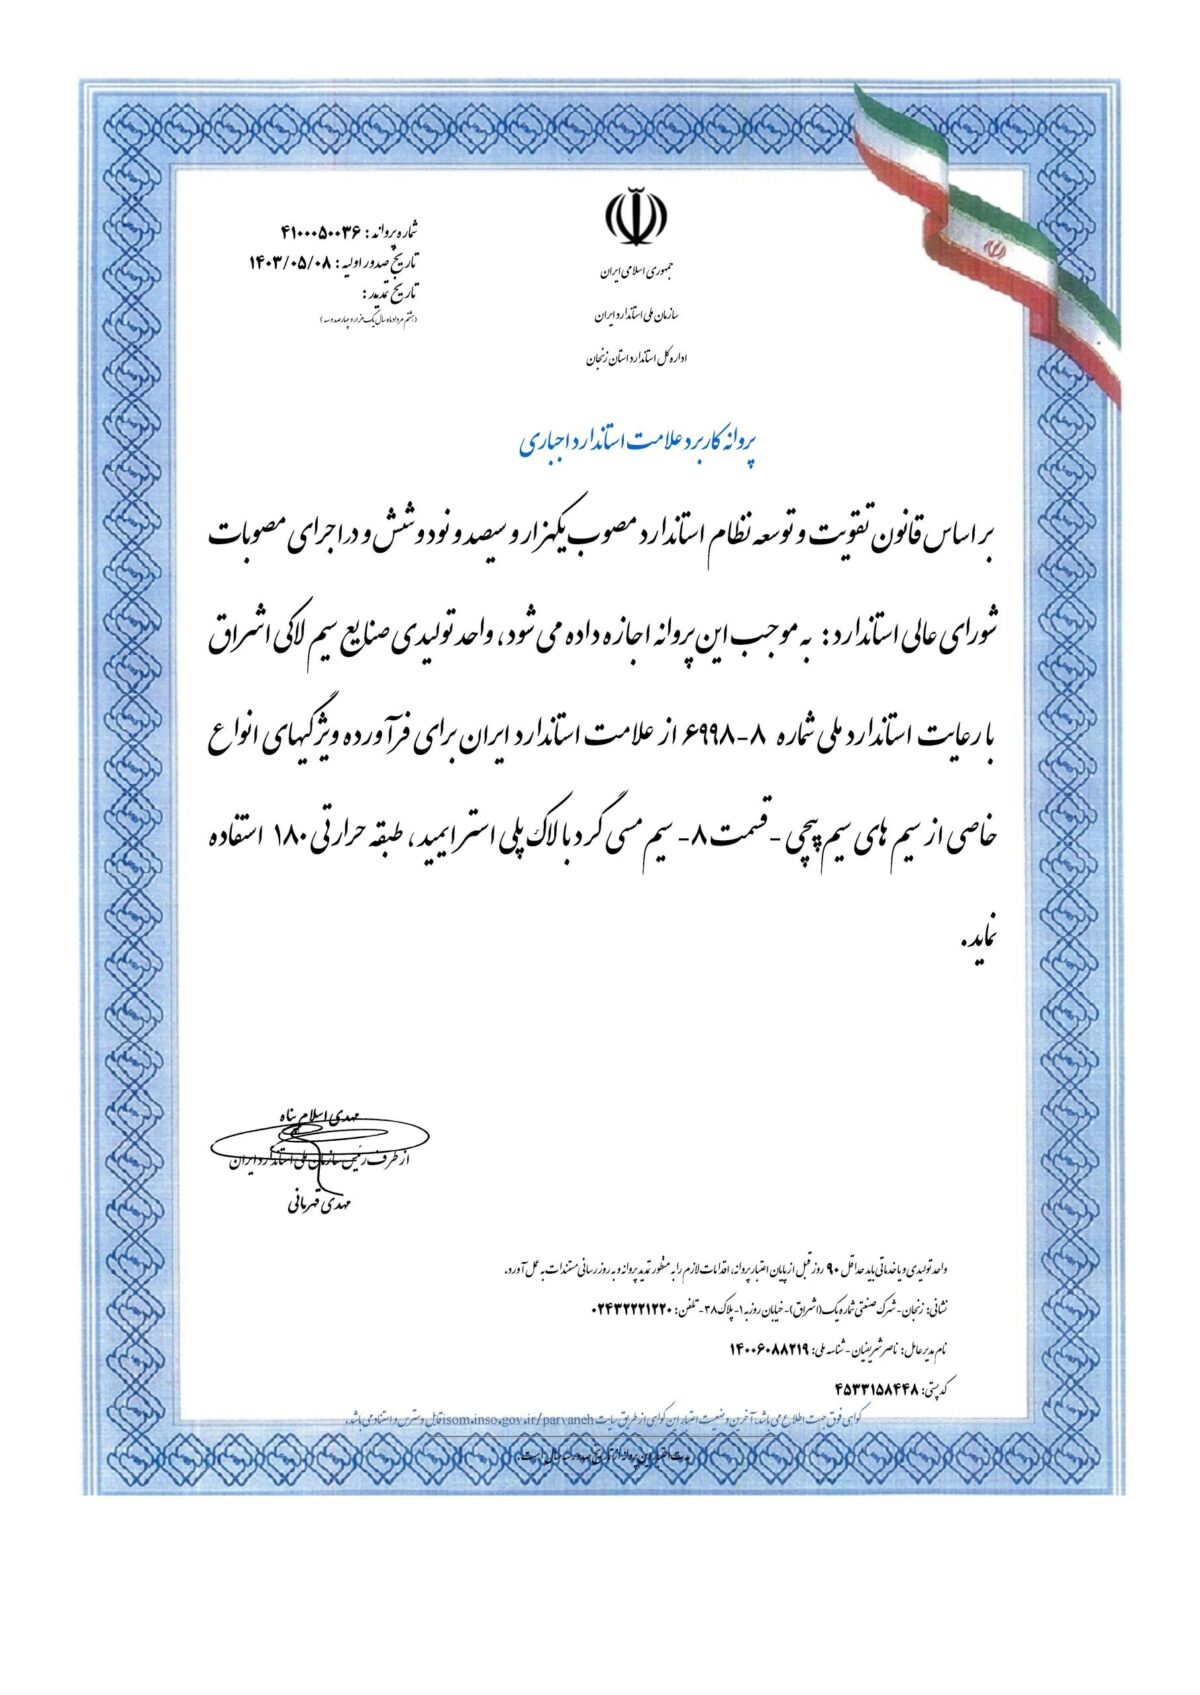 شماره پروانه : ۴۱۰۰۰۵۰۰۳۶
تاریخ صدور اولیه : ۱۴۰۳/۰۵/۰۸
تاریخ تمدید :
(هشتم مرداد ماه سال یک هزار و چهارصد و سه)
جمهوری اسلامی ایران
سازمان ملی استاندارد ایران
اداره کل استاندارد استان زنجان
پروانه کاربرد علامت استاندارد اجباری
بر اساس قانون تقویت و توسعه نظام استاندارد مصوب یکهزار و سیصد و نود و شش و در اجرای مصوبات
شورای عالی استاندارد : به موجب این پروانه اجازه داده می شود، واحد تولیدی صنایع سیم لاکی اشراق
با رعایت استاندارد ملی شماره ۸-۶۹۹۸ از علامت استاندارد ایران برای فرآورده ویژگیهای انواع
خاصی از سیم های سیم پیچی - قسمت ۸- سیم مسی گرد با لاک پلی استر ایمید ، طبقه حرارتی ۱۸۰ استفاده
نماید.
مهدی اسلام پناه
از طرف رئیس سازمان ملی استاندارد ایران
مهدی قهرمانی
واحد تولیدی و یا خدماتی باید حداقل ۹۰ روز قبل از پایان اعتبار پروانه، اقدامات لازم را به منظور تمدید پروانه و به روز رسانی مستندات به عمل آورد.
نشانی: زنجان- شهرک صنعتی شماره یک (اشراق)- خیابان روزبه ۱- پلاک ۳۸- تلفن: ۰۲۴۳۲۲۲۱۲۲۰
نام مدیر عامل: ناصر شریفیان - شناسه ملی: ۱۴۰۰۶۰۸۸۲۱۹
کد پستی: ۴۵۳۳۱۵۸۴۴۸
گواهی فوق جهت اطلاع می باشد، آخرین وضعیت اعتبار این گواهی از طریق سایت isom.inso.gov.ir/parvaneh قابل دسترس و استناد می باشد.
مدت اعتبار این پروانه از تاریخ صدور سه سال است.